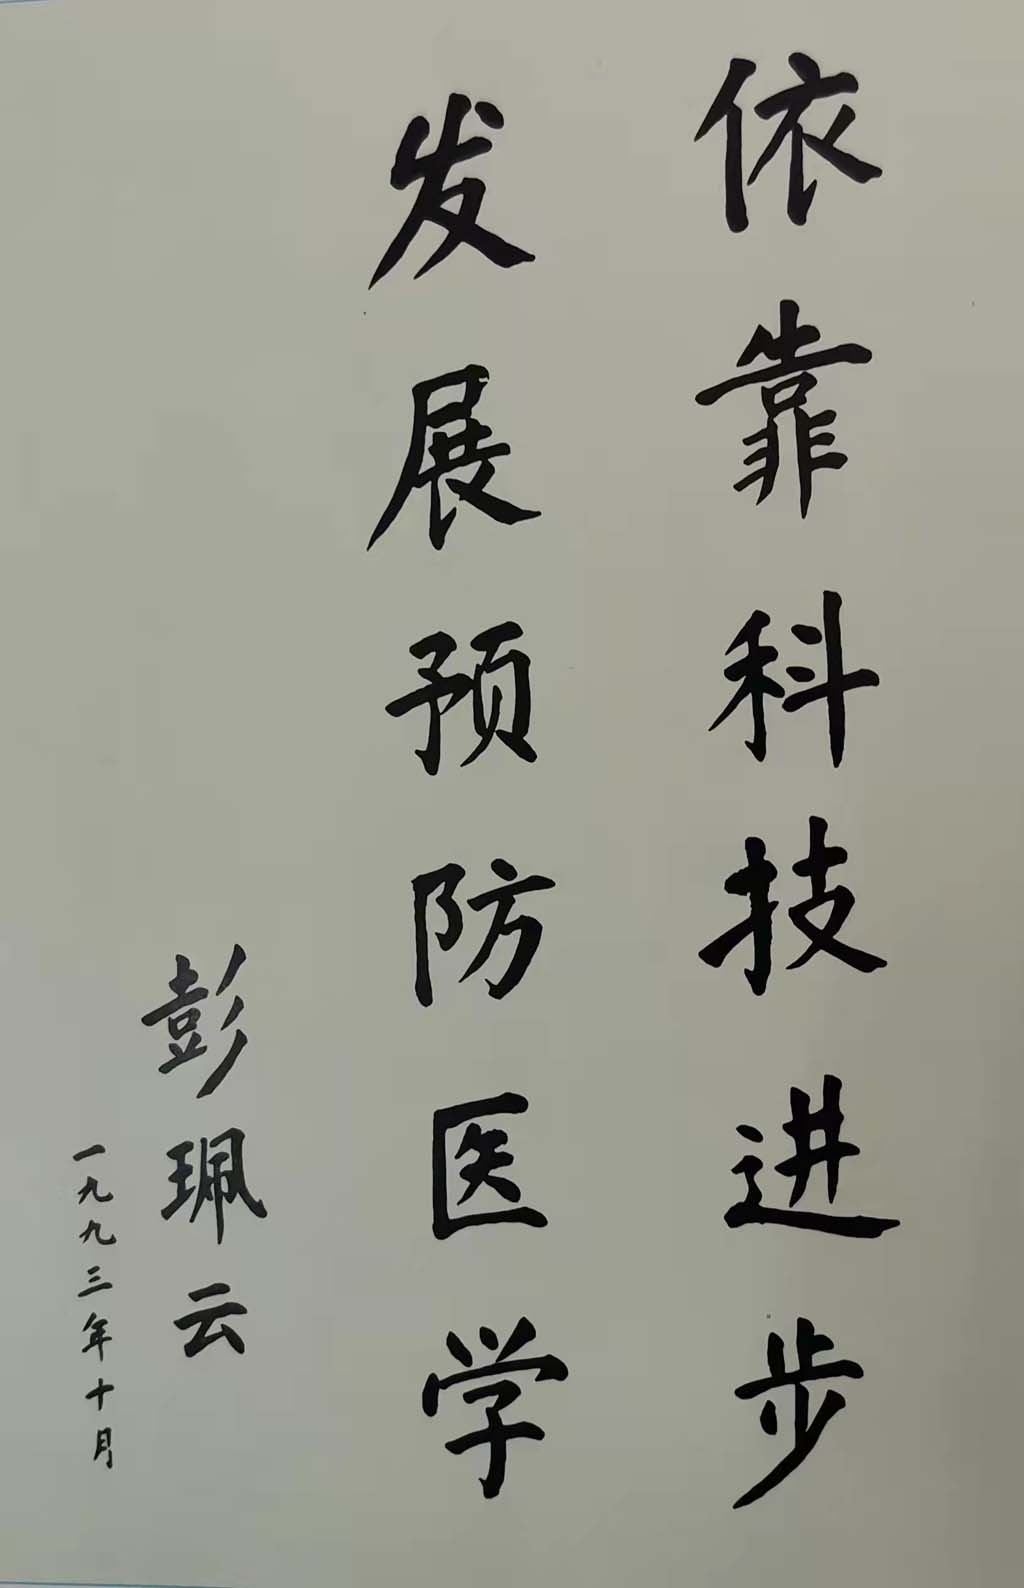 依靠科技进步
发展预防医学
彭珮云
一九九三年十月